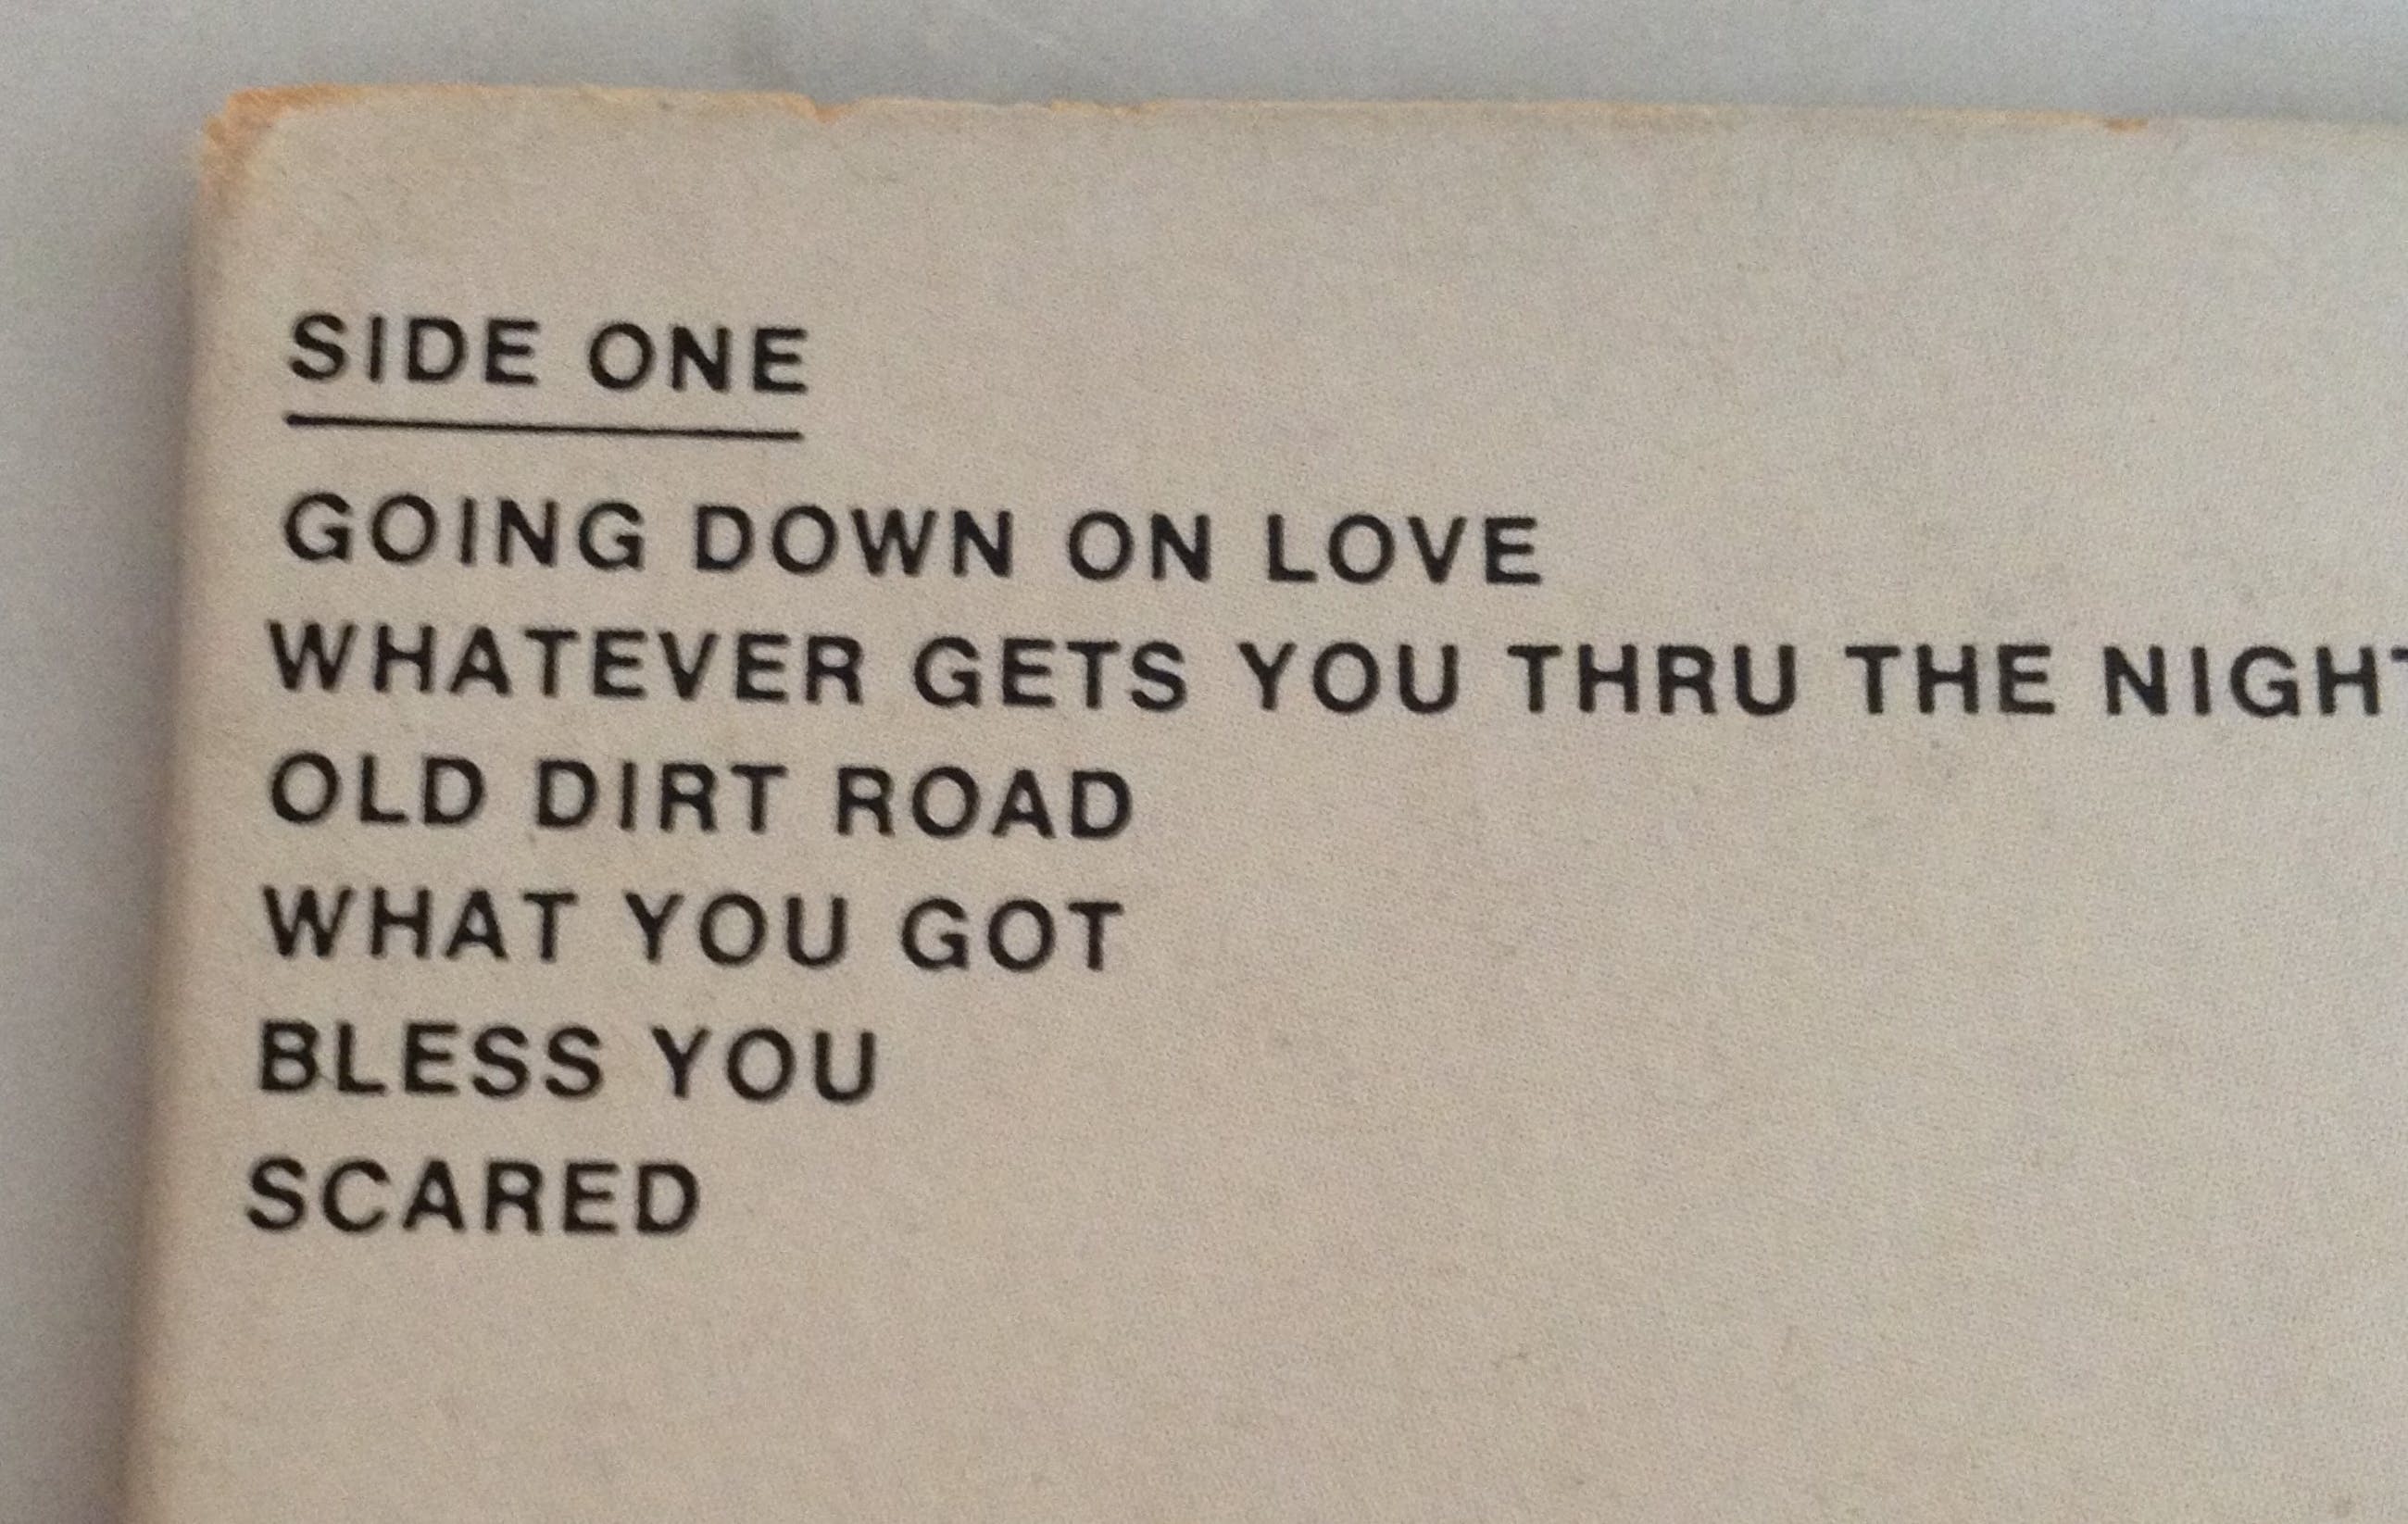 SIDE ONE
GOING DOWN ON LOVE
WHATEVER GETS YOU THRU THE NIGHT
OLD DIRT ROAD
WHAT YOU GOT
BLESS YOU
SCARED